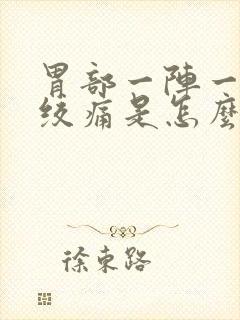 胃部一陣一
絞痛是怎麼
徐東路